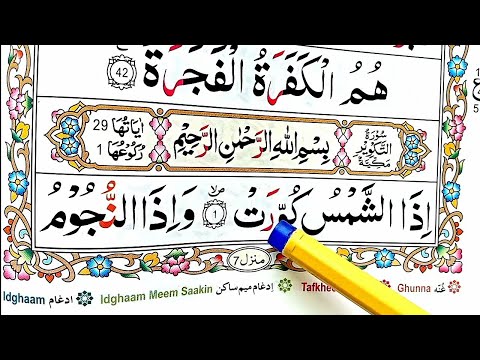 هُمُ الْكَفَرَةُ الْفَجَرَةُ
42
سُوْرَةُ التَّكْوِيْرِ مَكِّيَّةٌ
بِسْمِ اللّٰهِ الرَّحْمٰنِ الرَّحِيْمِ
اٰيَاتُهَا 29
رُكُوْعُهَا 1
اِذَا الشَّمْسُ كُوِّرَتْ ۙ 1 وَاِذَا النُّجُوْمُ
منزل 7
Idghaam ادغام Idghaam Meem Saakin ادغام میم ساکن Ghunna غُنّه